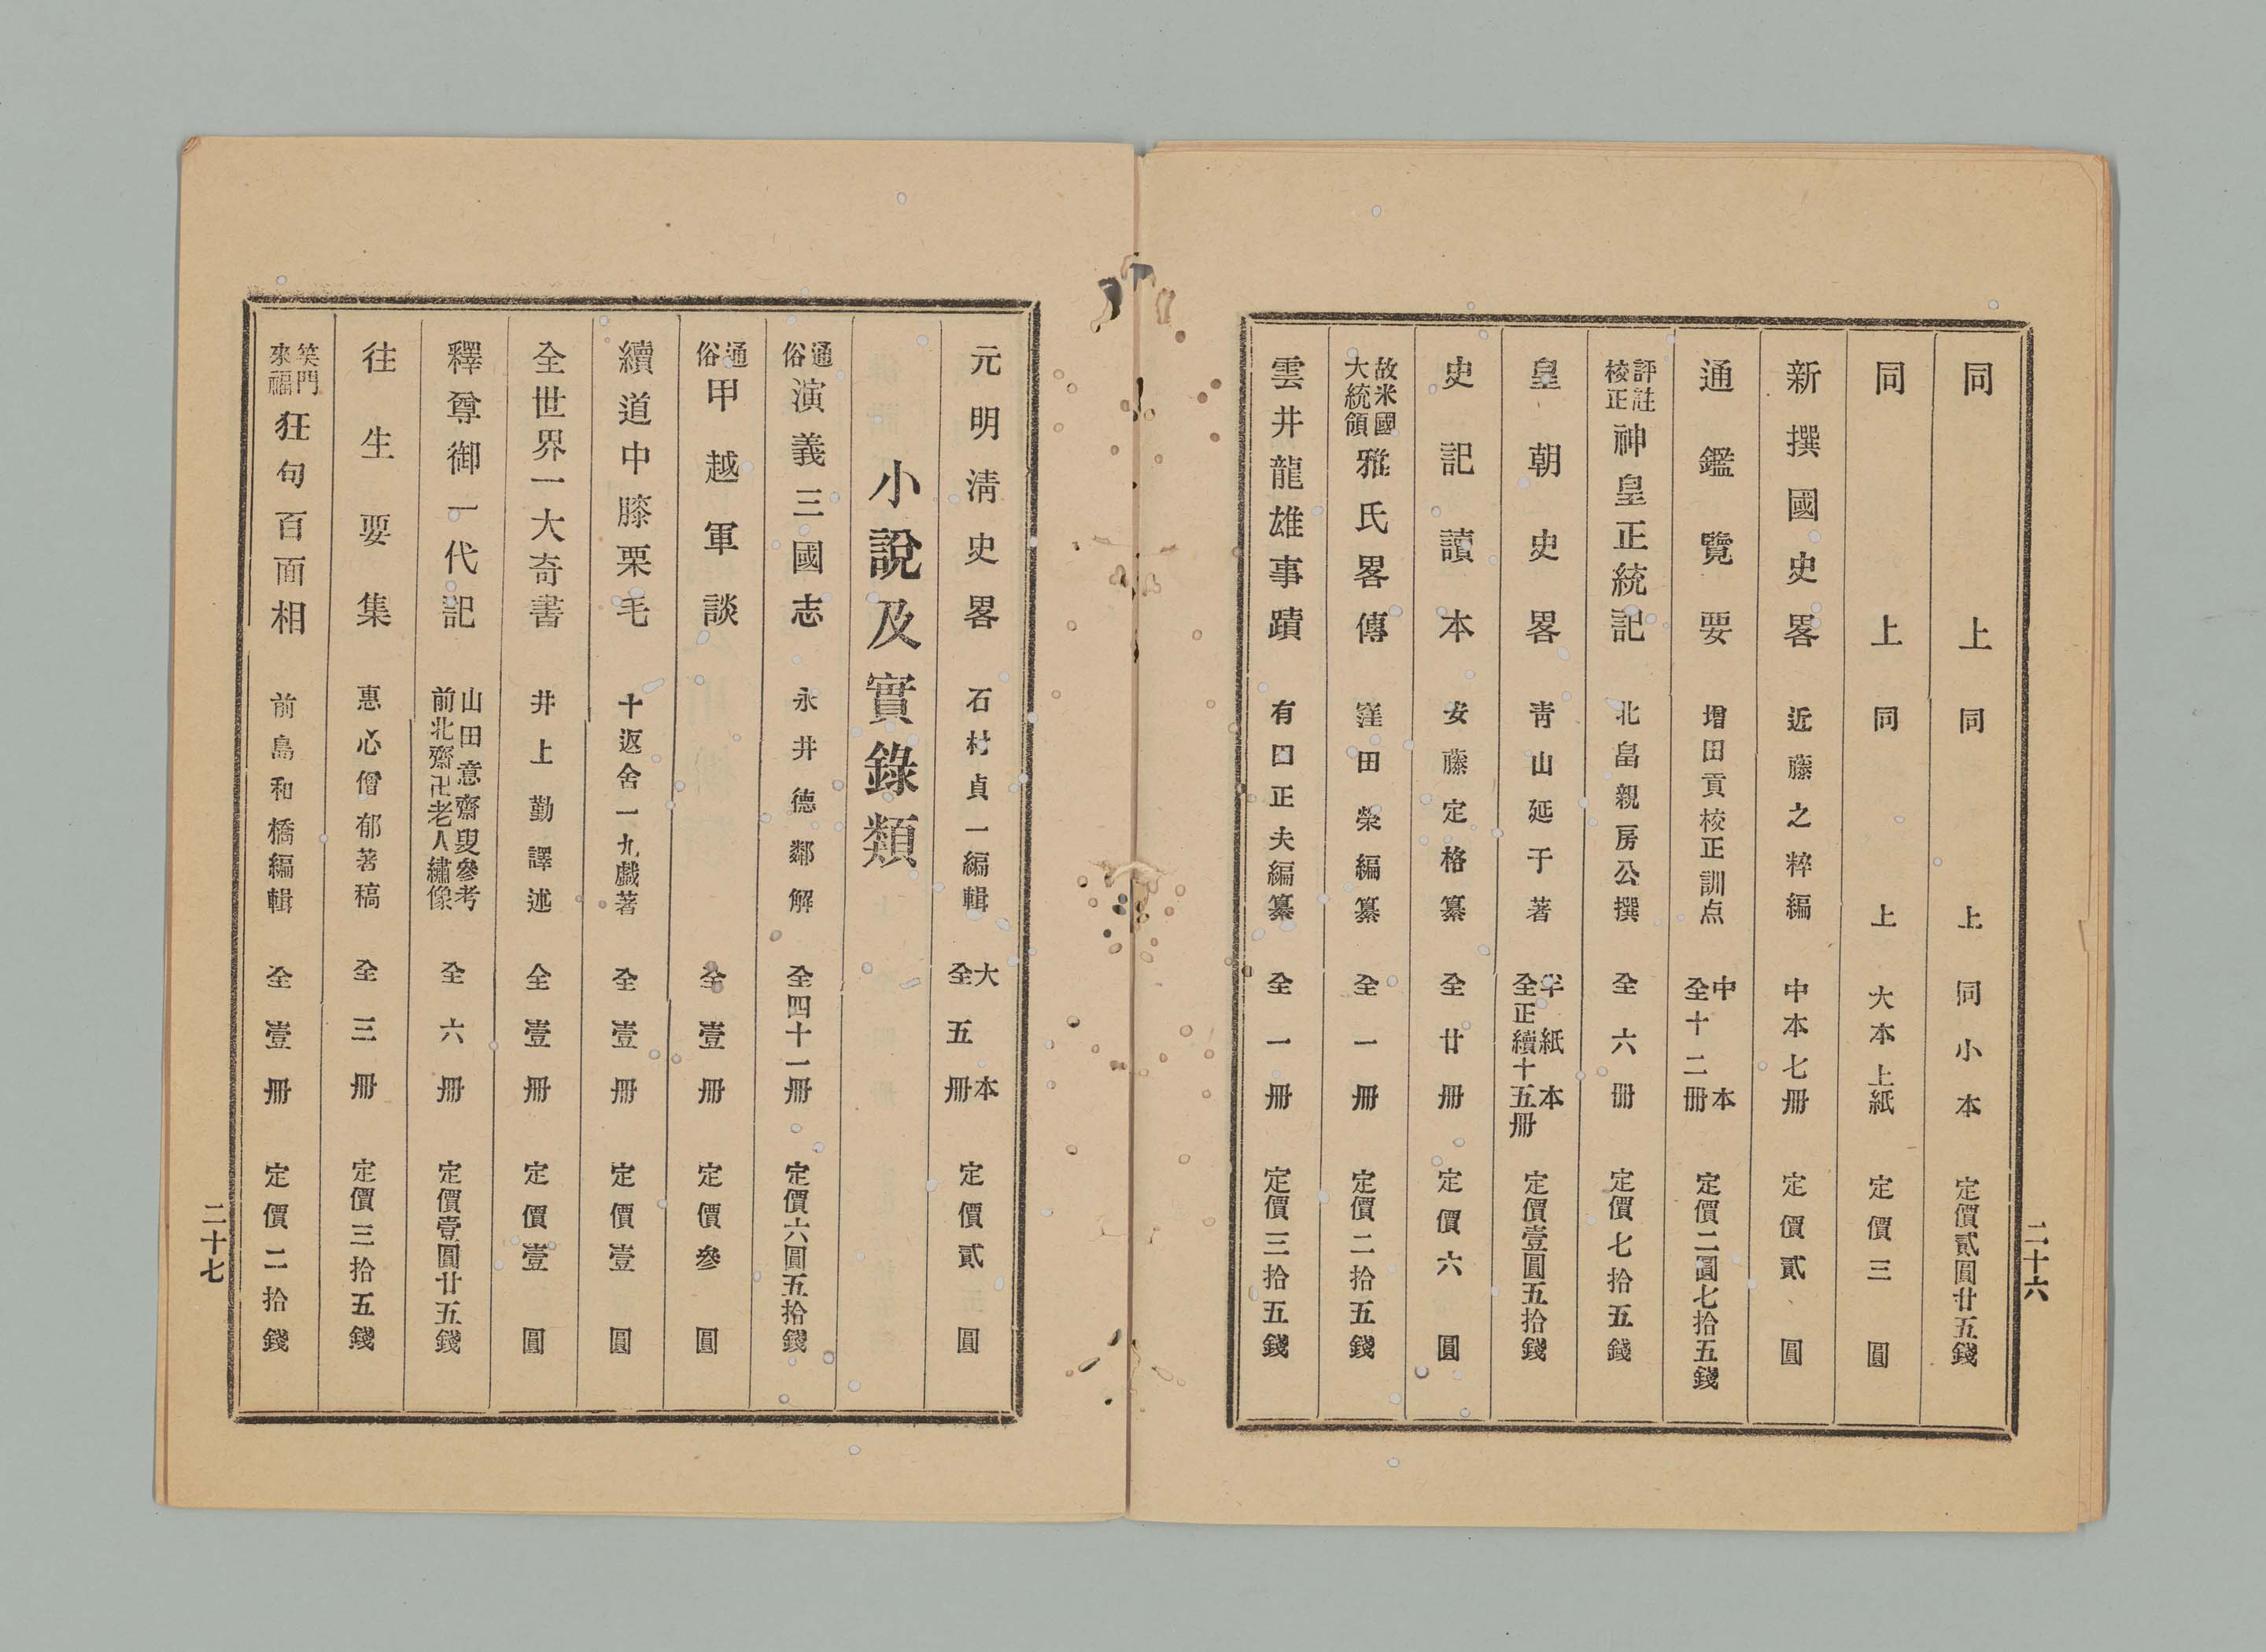 同上 同上 同小本 定價貳圓廿五錢
同上 同上 大本上紙 定價三圓
新撰國史畧 近藤之粹編 中本七冊 定價貳圓
通鑑覽要 增田貢校正訓点 中本全十二冊 定價二圓七拾五錢
評註校正神皇正統記 北畠親房公撰 全六冊 定價七拾五錢
皇朝史畧 靑山延于著 半紙本全正續十五冊 定價壹圓五拾錢
史記讀本 安藤定格纂 全廿冊 定價六圓
故米國大統領雅氏畧傳 窪田榮編纂 全一冊 定價二拾五錢
雲井龍雄事蹟 有田正夫編纂 全一冊 定價三拾五錢
二十六
元明淸史畧 石村貞一編輯 大本全五冊 定價貳圓
小說及實錄類
通俗演義三國志 永井德鄰解 全四十一冊 定價六圓五拾錢
通俗甲越軍談 全壹冊 定價參圓
續道中膝栗毛 十返舍一九戲著 全壹冊 定價壹圓
全世界一大奇書 井上勤譯述 全壹冊 定價壹圓
釋尊御一代記 山田意齋叟參考前北齋卍老人繡像 全六冊 定價壹圓廿五錢
往生要集 惠心僧郁著稿 全三冊 定價三拾五錢
笑門來福狂句百面相 前島和橋編輯 全壹冊 定價二拾錢
二十七